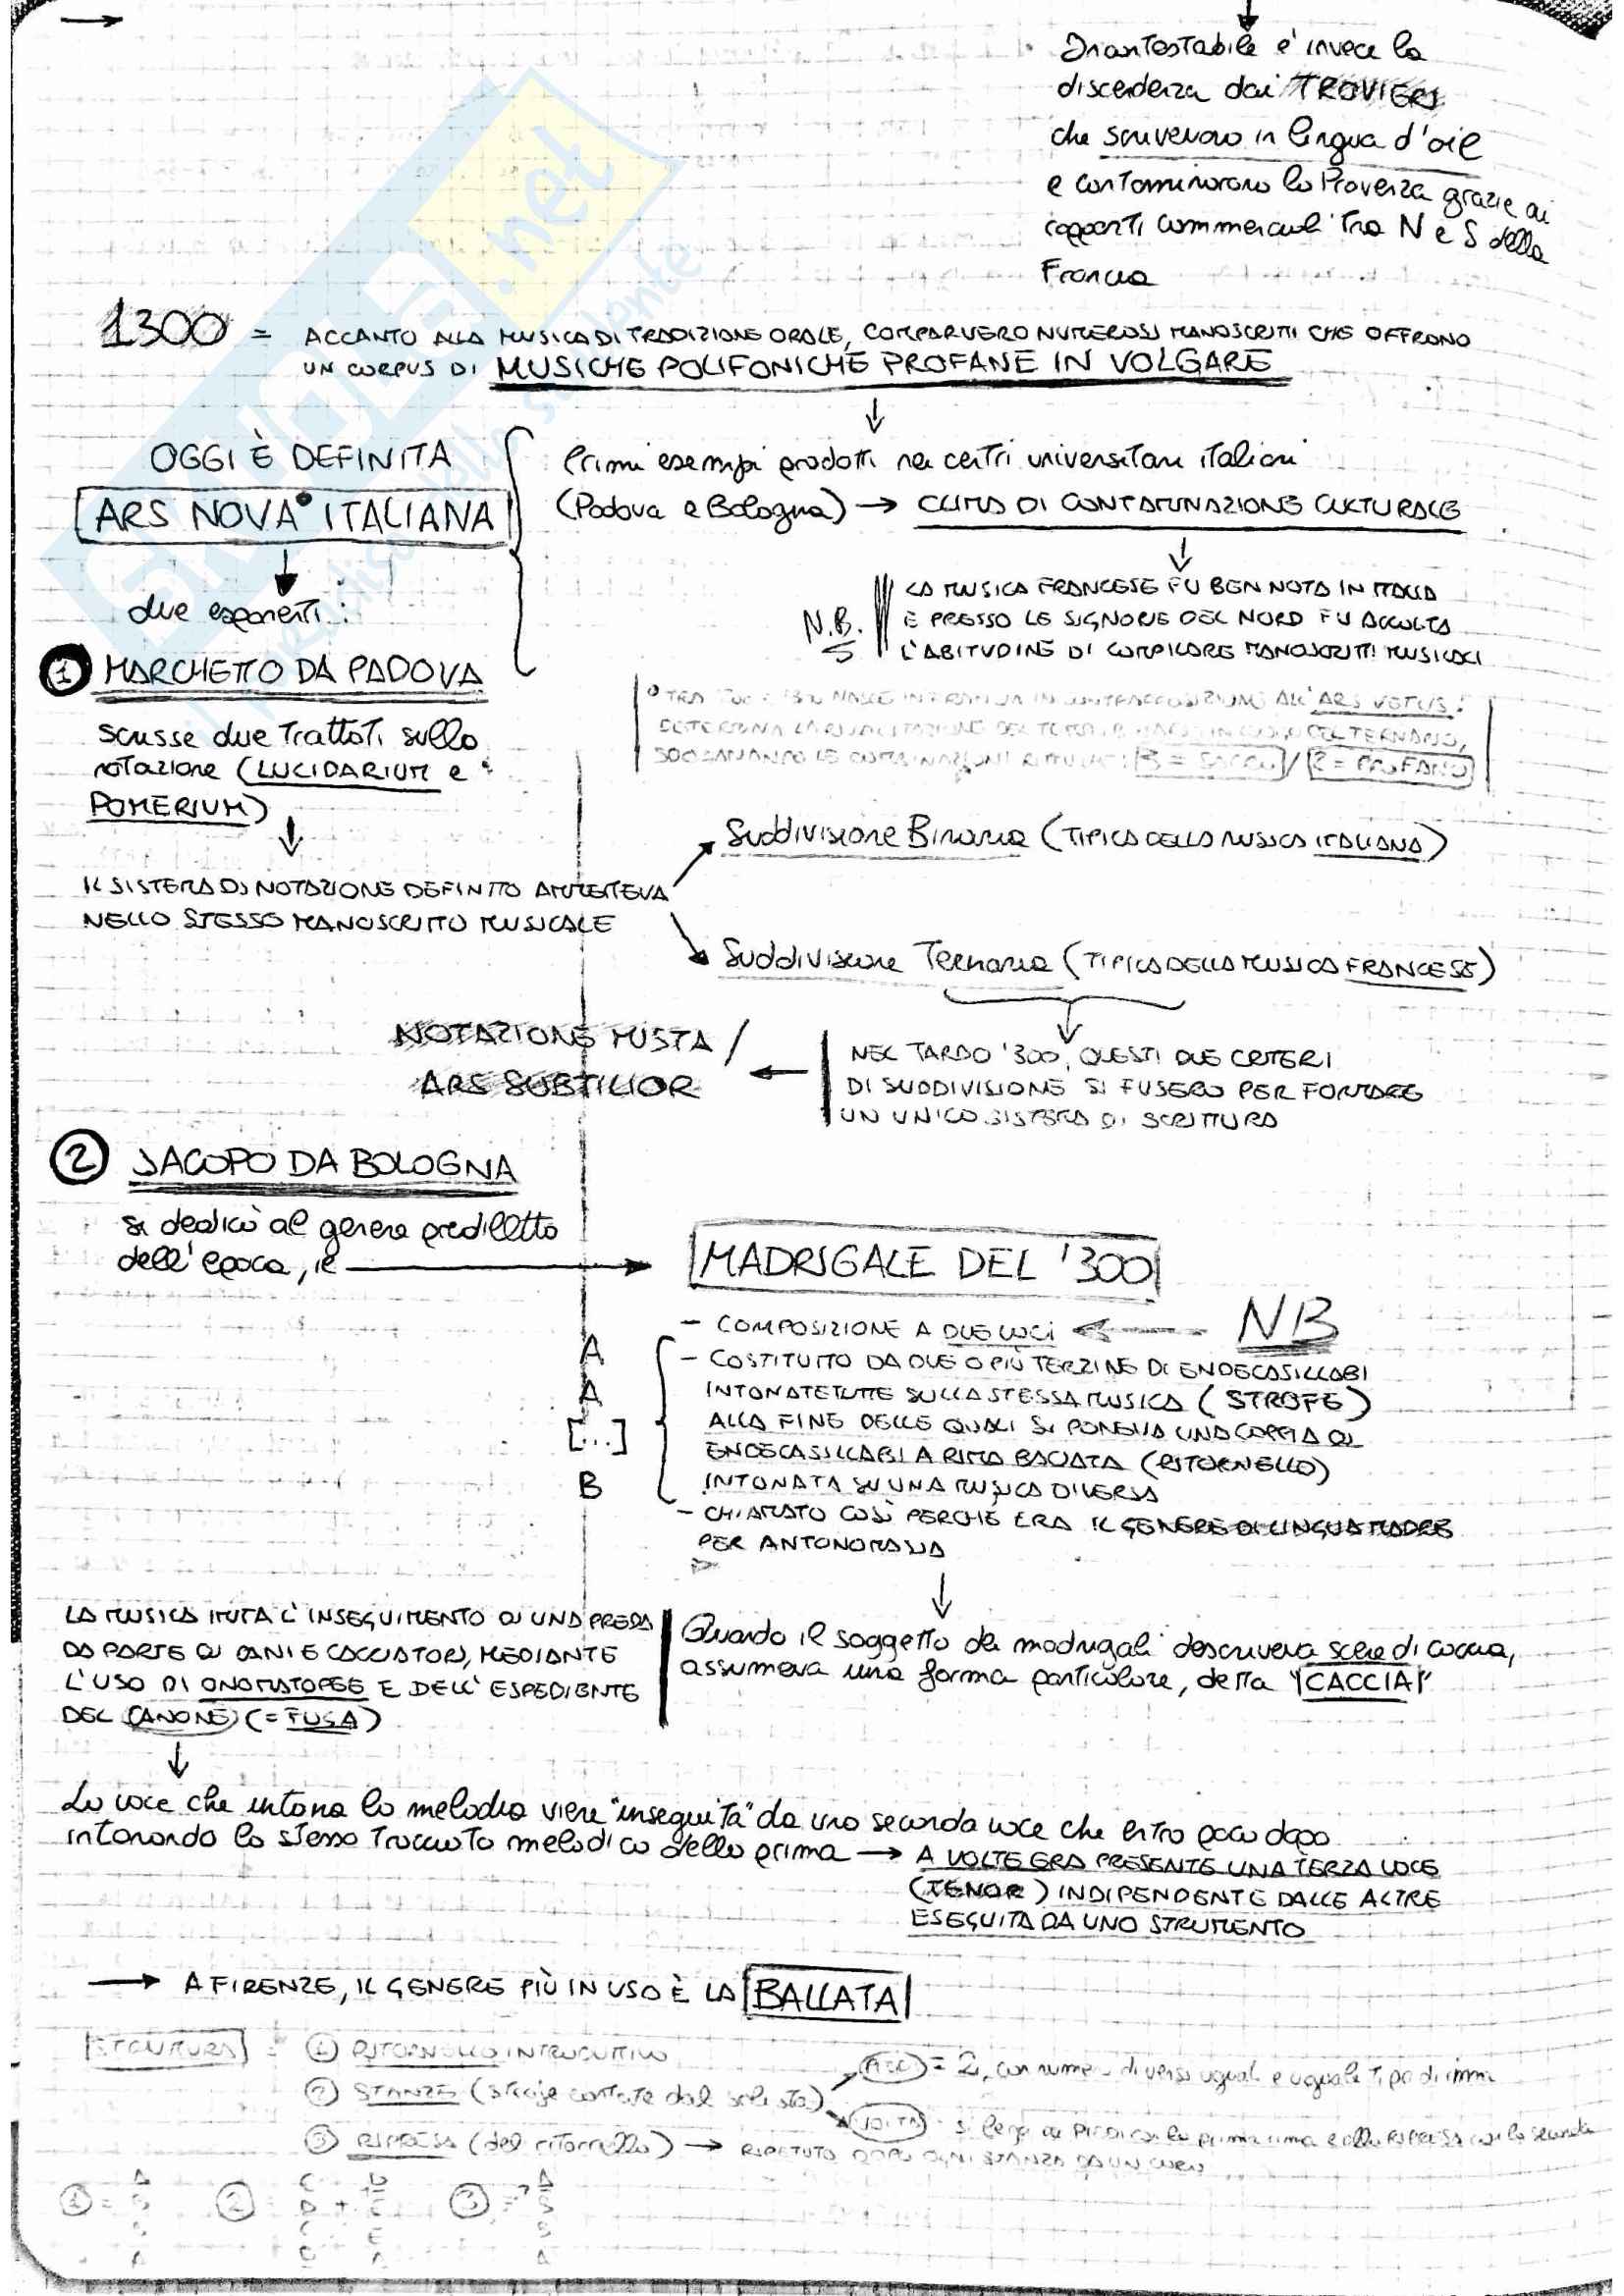 Incontestabile è invece la
discendenza dai TROVIERI
che scrivevano in lingua d'oil
e contaminarono la Provenza grazie ai
rapporti commerciali tra N e S della
Francia
1300 = ACCANTO ALLA MUSICA DI TRADIZIONE ORALE, COMPARVERO NUMEROSI MANOSCRITTI CHE OFFRONO
UN CORPUS DI MUSICHE POLIFONICHE PROFANE IN VOLGARE
↓
OGGI È DEFINITA
ARS NOVA° ITALIANA
Primi esempi prodotti nei centri universitari italiani
(Padova e Bologna) → CLIMA DI CONTAMINAZIONE CULTURALE
↓
N.B.
LA MUSICA FRANCESE FU BEN NOTA IN ITALIA
E PRESSO LE SIGNORIE DEL NORD FU ACCOLTA
L'ABITUDINE DI COMPILARE MANOSCRITTI MUSICALI
due esponenti:
① MARCHETTO DA PADOVA
scrisse due trattati sulla
notazione (LUCIDARIUM e
POMERIUM)
↓
° TRA NASCE IN FRANCIA IN CONTRAPPOSIZIONE ALL'ARS VETUS:
DETERMINA LA RIVALUTAZIONE DEL TERNARIO,
3 = SACRO / 2 = PROFANO
IL SISTEMA DI NOTAZIONE DEFINITO AMMETTEVA
NELLO STESSO MANOSCRITTO MUSICALE
Suddivisione Binaria (TIPICA DELLA MUSICA ITALIANA)
Suddivisione Ternaria (TIPICA DELLA MUSICA FRANCESE)
↓
NEL TARDO '300, QUESTI DUE CRITERI
DI SUDDIVISIONE SI FUSERO PER FORMARE
UN UNICO SISTEMA DI SCRITTURA
← NOTAZIONE MISTA /
ARS SUBTILIOR
② JACOPO DA BOLOGNA
si dedicò al genere prediletto
dell'epoca, il →
MADRIGALE DEL '300
- COMPOSIZIONE A DUE VOCI ← NB
- COSTITUITO DA DUE O PIÙ TERZINE DI ENDECASILLABI
INTONATE TUTTE SULLA STESSA MUSICA (STROFE)
ALLA FINE DELLE QUALI SI PONEVA UNA COPPIA DI
ENDECASILLABI A RIMA BACIATA (RITORNELLO)
INTONATA SU UNA MUSICA DIVERSA
A
A
[...]
B
- CHIAMATO COSÌ PERCHÉ ERA IL GENERE DI LINGUA MADRE
PER ANTONOMASIA
↓
Quando il soggetto dei madrigali descriveva scene di caccia,
assumeva una forma particolare, detta "CACCIA"
LA MUSICA IMITA L'INSEGUIMENTO DI UNA PREDA
DA PARTE DI CANI E CACCIATORI, MEDIANTE
L'USO DI ONOMATOPEE E DELL'ESPEDIENTE
DEL CANONE (= FUGA)
↓
La voce che intona la melodia viene "inseguita" da una seconda voce che entra poco dopo
intonando lo stesso tracciato melodico della prima → A VOLTE ERA PRESENTE UNA TERZA VOCE
(TENOR) INDIPENDENTE DALLE ALTRE
ESEGUITA DA UNO STRUMENTO
→ A FIRENZE, IL GENERE PIÙ IN USO È LA BALLATA
STRUTTURA
① RITORNELLO INTRODUTTIVO
② STANZE (strofe cantate dal solista)
= 2, con numero di versi uguali e uguale tipo di rima
VOLTA si lega ai PIEDI con la prima rima e alla RIPRESA con la seconda
③ RIPRESA (del ritornello) → RIPETUTO DOPO OGNI STANZA DA UN CORO